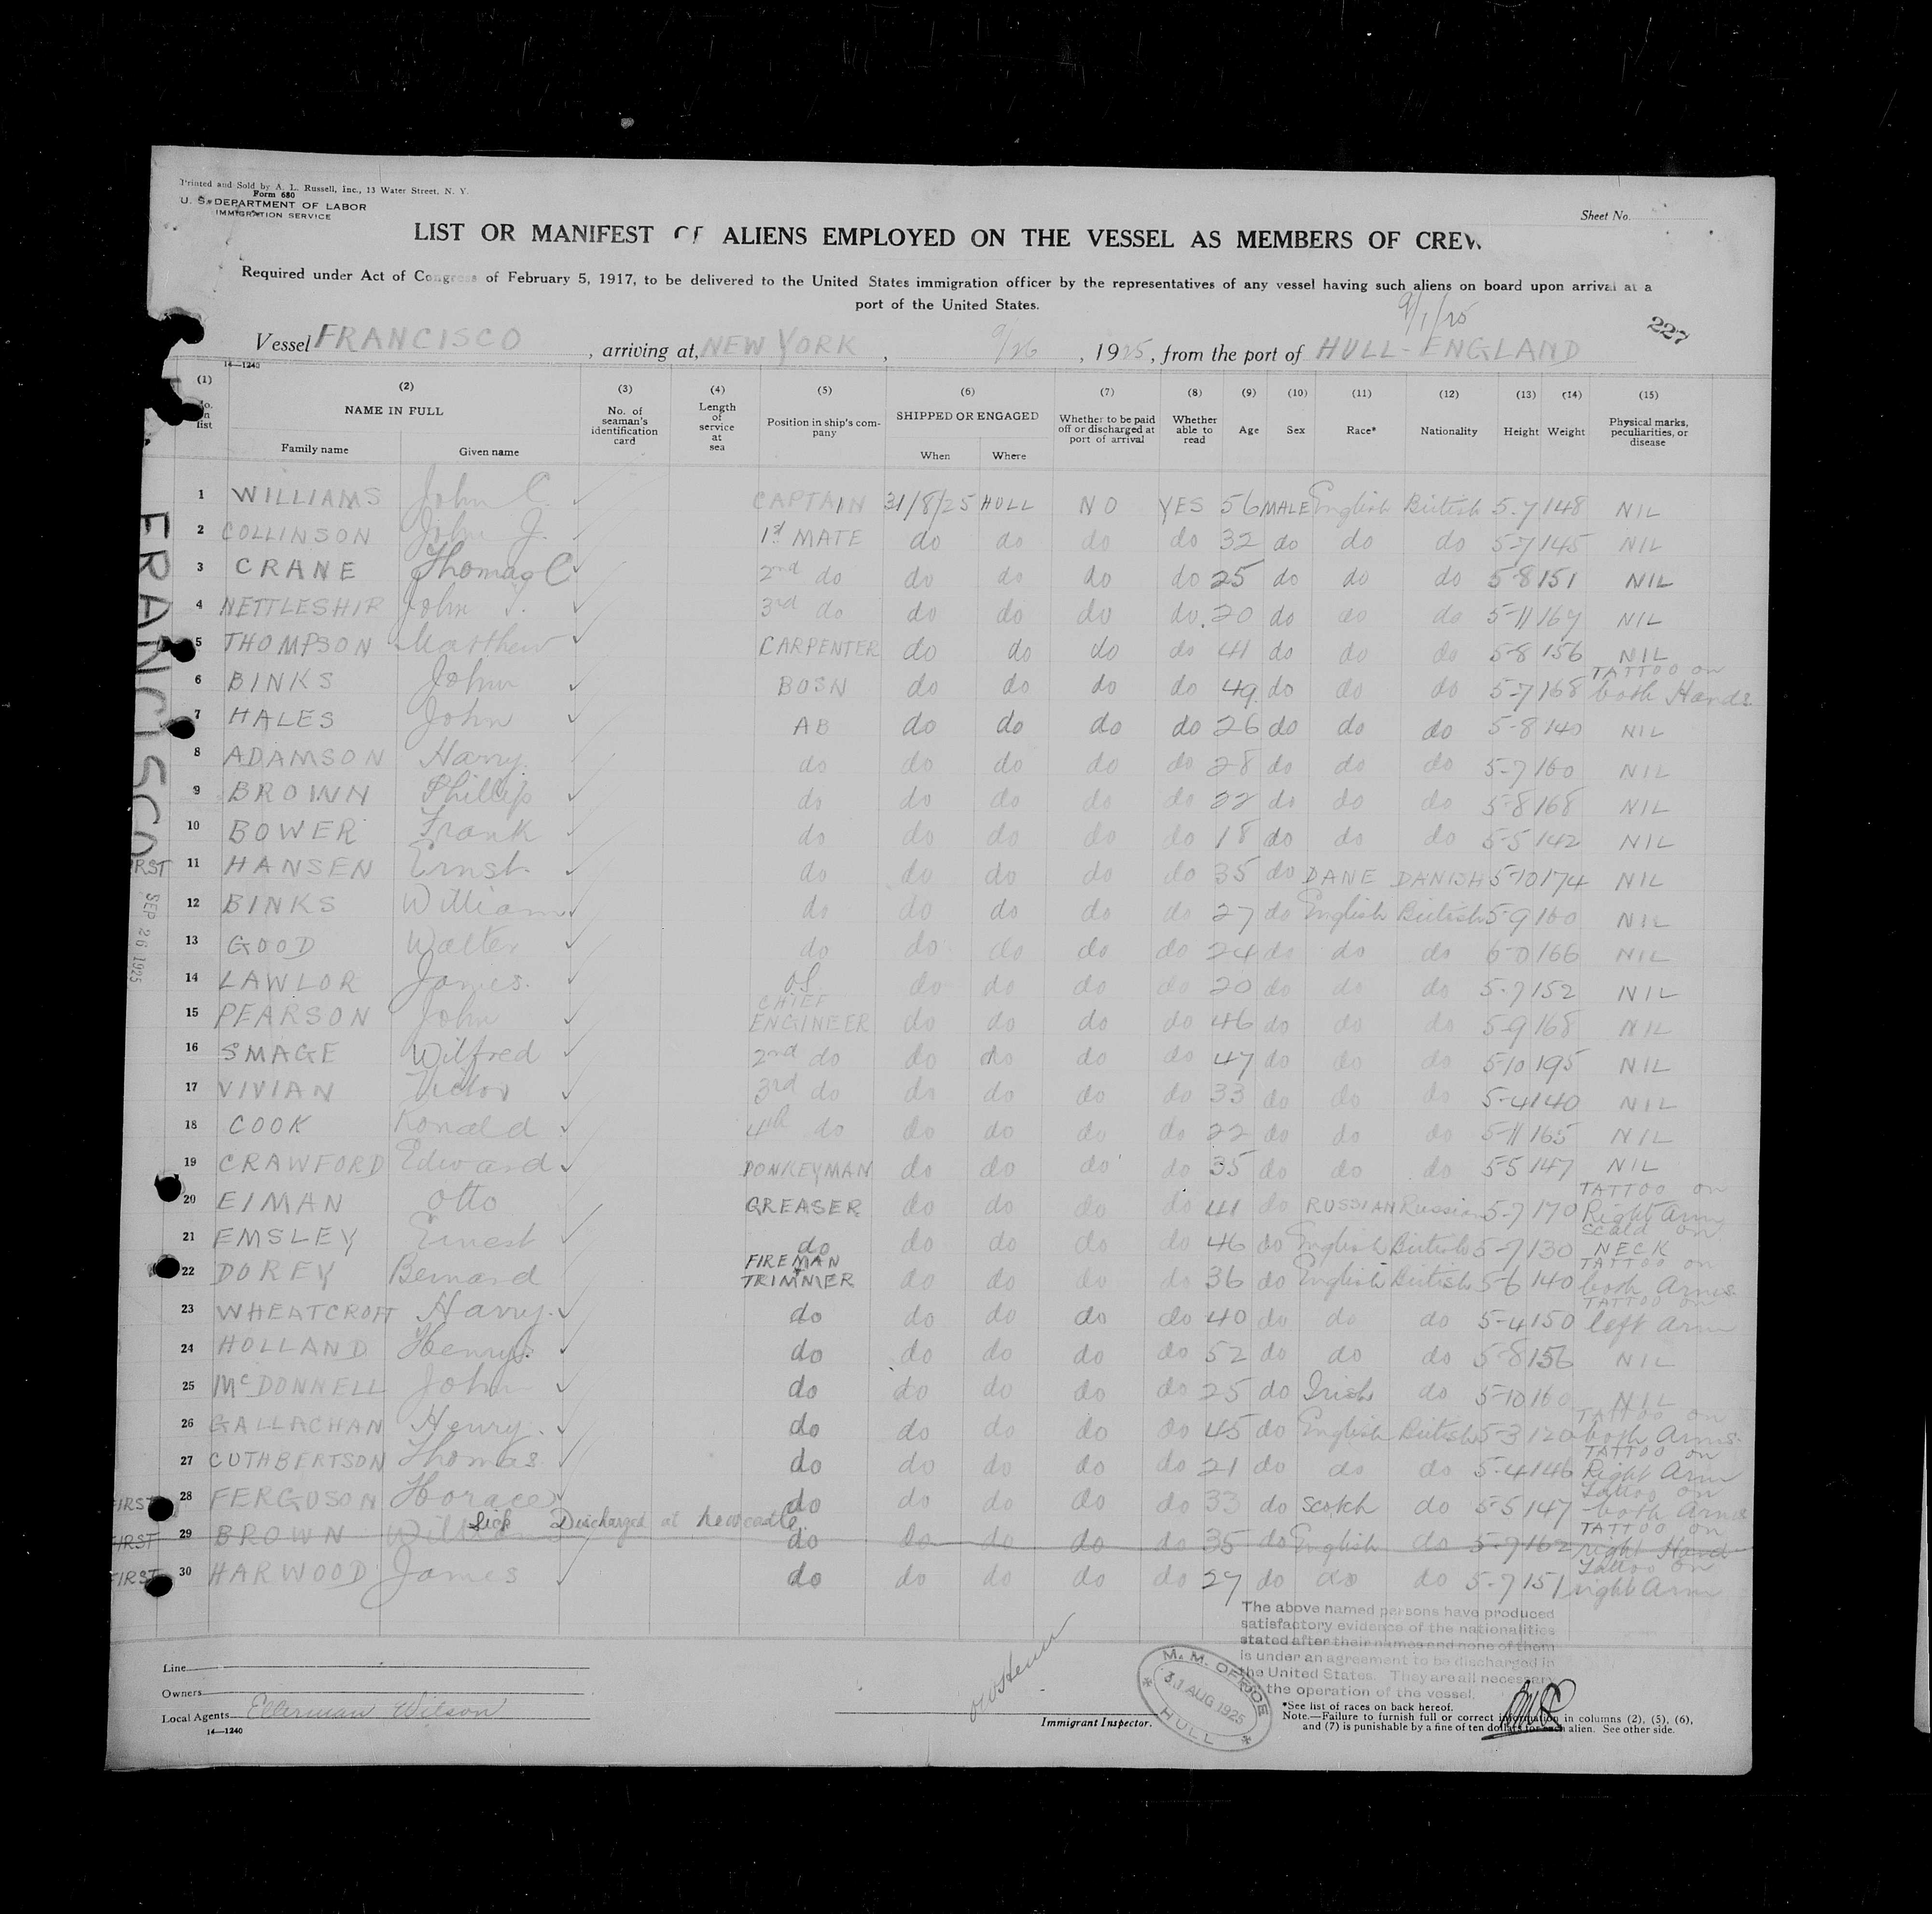 Printed and Sold by A. L. Russell, Inc., 13 Water Street, N. Y.
Form 680
U. S. DEPARTMENT OF LABOR
IMMIGRATION SERVICE
Sheet No.
LIST OR MANIFEST OF ALIENS EMPLOYED ON THE VESSEL AS MEMBERS OF CREW
Required under Act of Congress of February 5, 1917, to be delivered to the United States immigration officer by the representatives of any vessel having such aliens on board upon arrival at a
port of the United States.
9/1/25
227
Vessel FRANCISCO, arriving at, NEW YORK, 9/26, 1925, from the port of HULL - ENGLAND
14—1240
(1) (2) (3) (4) (5) (6) (7) (8) (9) (10) (11) (12) (13) (14) (15)
No. on list
NAME IN FULL
Family name Given name
No. of seaman's identification card
Length of service at sea
Position in ship's company
SHIPPED OR ENGAGED
When Where
Whether to be paid off or discharged at port of arrival
Whether able to read
Age Sex Race* Nationality Height Weight
Physical marks, peculiarities, or disease
1 WILLIAMS John C. CAPTAIN 31/8/25 HULL NO YES 56 MALE English British 5-7 148 NIL
2 COLLINSON John J. 1st MATE do do do do 32 do do do 5-7 145 NIL
3 CRANE Thomas C 2nd do do do do do 25 do do do 5-8 151 NIL
4 NETTLESHIP John 3rd do do do do do 20 do do do 5-11 167 NIL
5 THOMPSON Matthew CARPENTER do do do do 41 do do do 5-8 156 NIL
6 BINKS John BOSN do do do do 49 do do do 5-7 168 TATTOO on both Hands
7 HALES John AB do do do do 26 do do do 5-8 140 NIL
8 ADAMSON Harry. do do do do do 28 do do do 5-7 160 NIL
9 BROWN Phillip do do do do do 22 do do do 5-8 168 NIL
10 BOWER Frank do do do do do 18 do do do 5-5 142 NIL
11 HANSEN Ernst. do do do do do 35 do DANE DANISH 5-10 174 NIL
12 BINKS William do do do do do 27 do English British 5-9 160 NIL
13 GOOD Walter do do do do do 24 do do do 6-0 166 NIL
14 LAWLOR James. OS do do do do 20 do do do 5-7 152 NIL
15 PEARSON John CHIEF ENGINEER do do do do 46 do do do 5-9 168 NIL
16 SMAGE Wilfred 2nd do do do do do 47 do do do 5-10 195 NIL
17 VIVIAN Victor 3rd do do do do do 33 do do do 5-4 140 NIL
18 COOK Ronald 4th do do do do do 22 do do do 5-11 165 NIL
19 CRAWFORD Edward DONKEYMAN do do do do 35 do do do 5-5 147 NIL
20 EIMAN Otto GREASER do do do do 41 do RUSSIAN Russian 5-7 170 TATTOO on Right Arm
21 EMSLEY Ernest do do do do do 46 do English British 5-7 130 Scald on NECK
22 DOREY Bernard FIREMAN TRIMMER do do do do 36 do English British 5-6 140 TATTOO on both Arms
23 WHEATCROFT Harry. do do do do do 40 do do do 5-4 150 TATTOO on left Arm
24 HOLLAND Henry. do do do do do 52 do do do 5-8 156 NIL
25 McDONNELL John do do do do do 25 do Irish do 5-10 160 NIL
26 GALLACHAN Henry. do do do do do 45 do English British 5-3 120 TATTOO on both Arms
27 CUTHBERTSON Thomas do do do do do 21 do do do 5-4 146 TATTOO on Right Arm
FIRST 28 FERGUSON Horace do do do do do 33 do Scotch do 5-5 147 Tattoo on both Arms
Sick Discharged at Newcastle
FIRST 29 BROWN William do do do do do 35 do English do 5-7 162 TATTOO on right Hand
FIRST 30 HARWOOD James do do do do do 27 do do do 5-7 151 Tattoo on right Arm
FRANCISCO
RST
SEP 26 1925
The above named persons have produced
satisfactory evidence of the nationalities
stated after their names and none of them
is under an agreement to be discharged in
the United States. They are all necessary
the operation of the vessel.
Line
Owners
Local Agents Ellerman Wilson
14—1240
Immigrant Inspector.
M. M. OFFICE
31 AUG 1925
HULL
*See list of races on back hereof.
Note.—Failure to furnish full or correct information in columns (2), (5), (6),
and (7) is punishable by a fine of ten dollars for each alien. See other side.